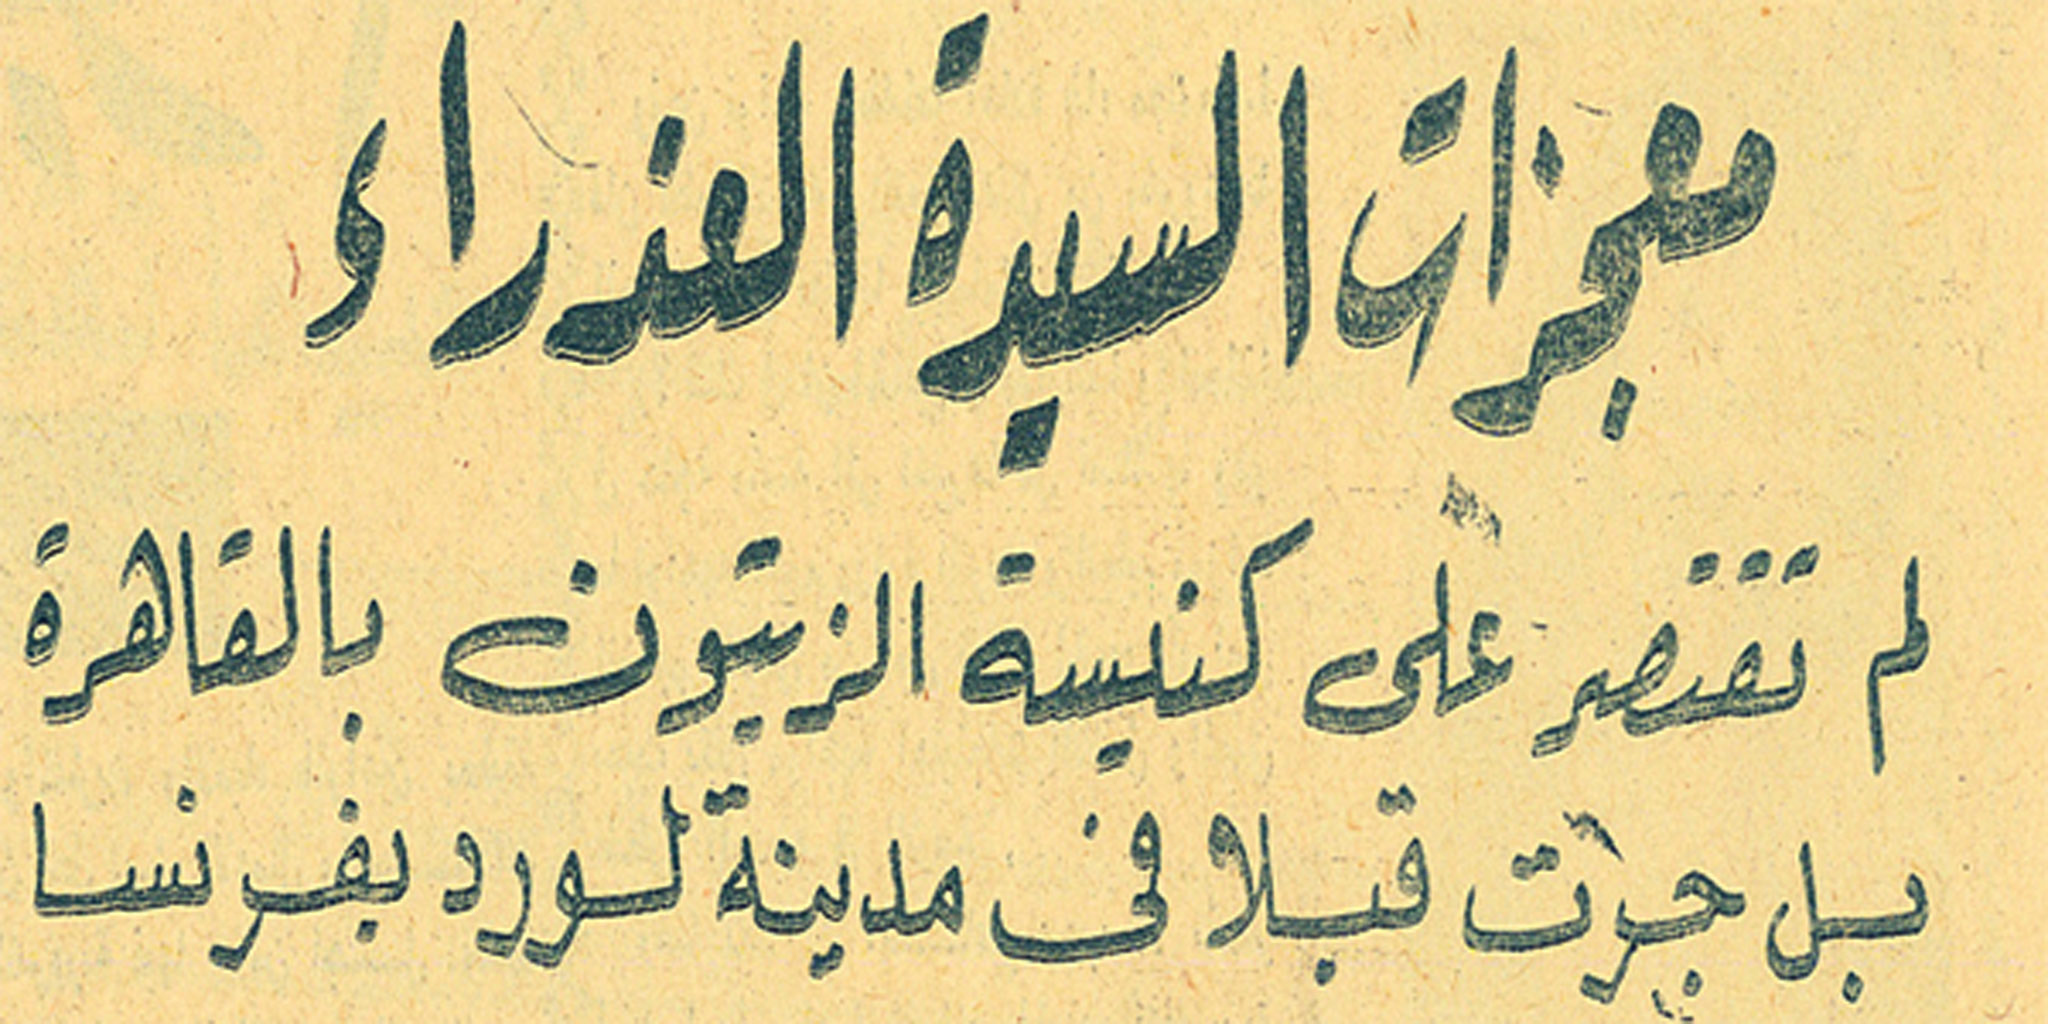 معجزات السيدة العذراء
لم تقتصر على كنيسة الزيتون بالقاهرة
بل جرت قبلا فى مدينة لورد بفرنسا